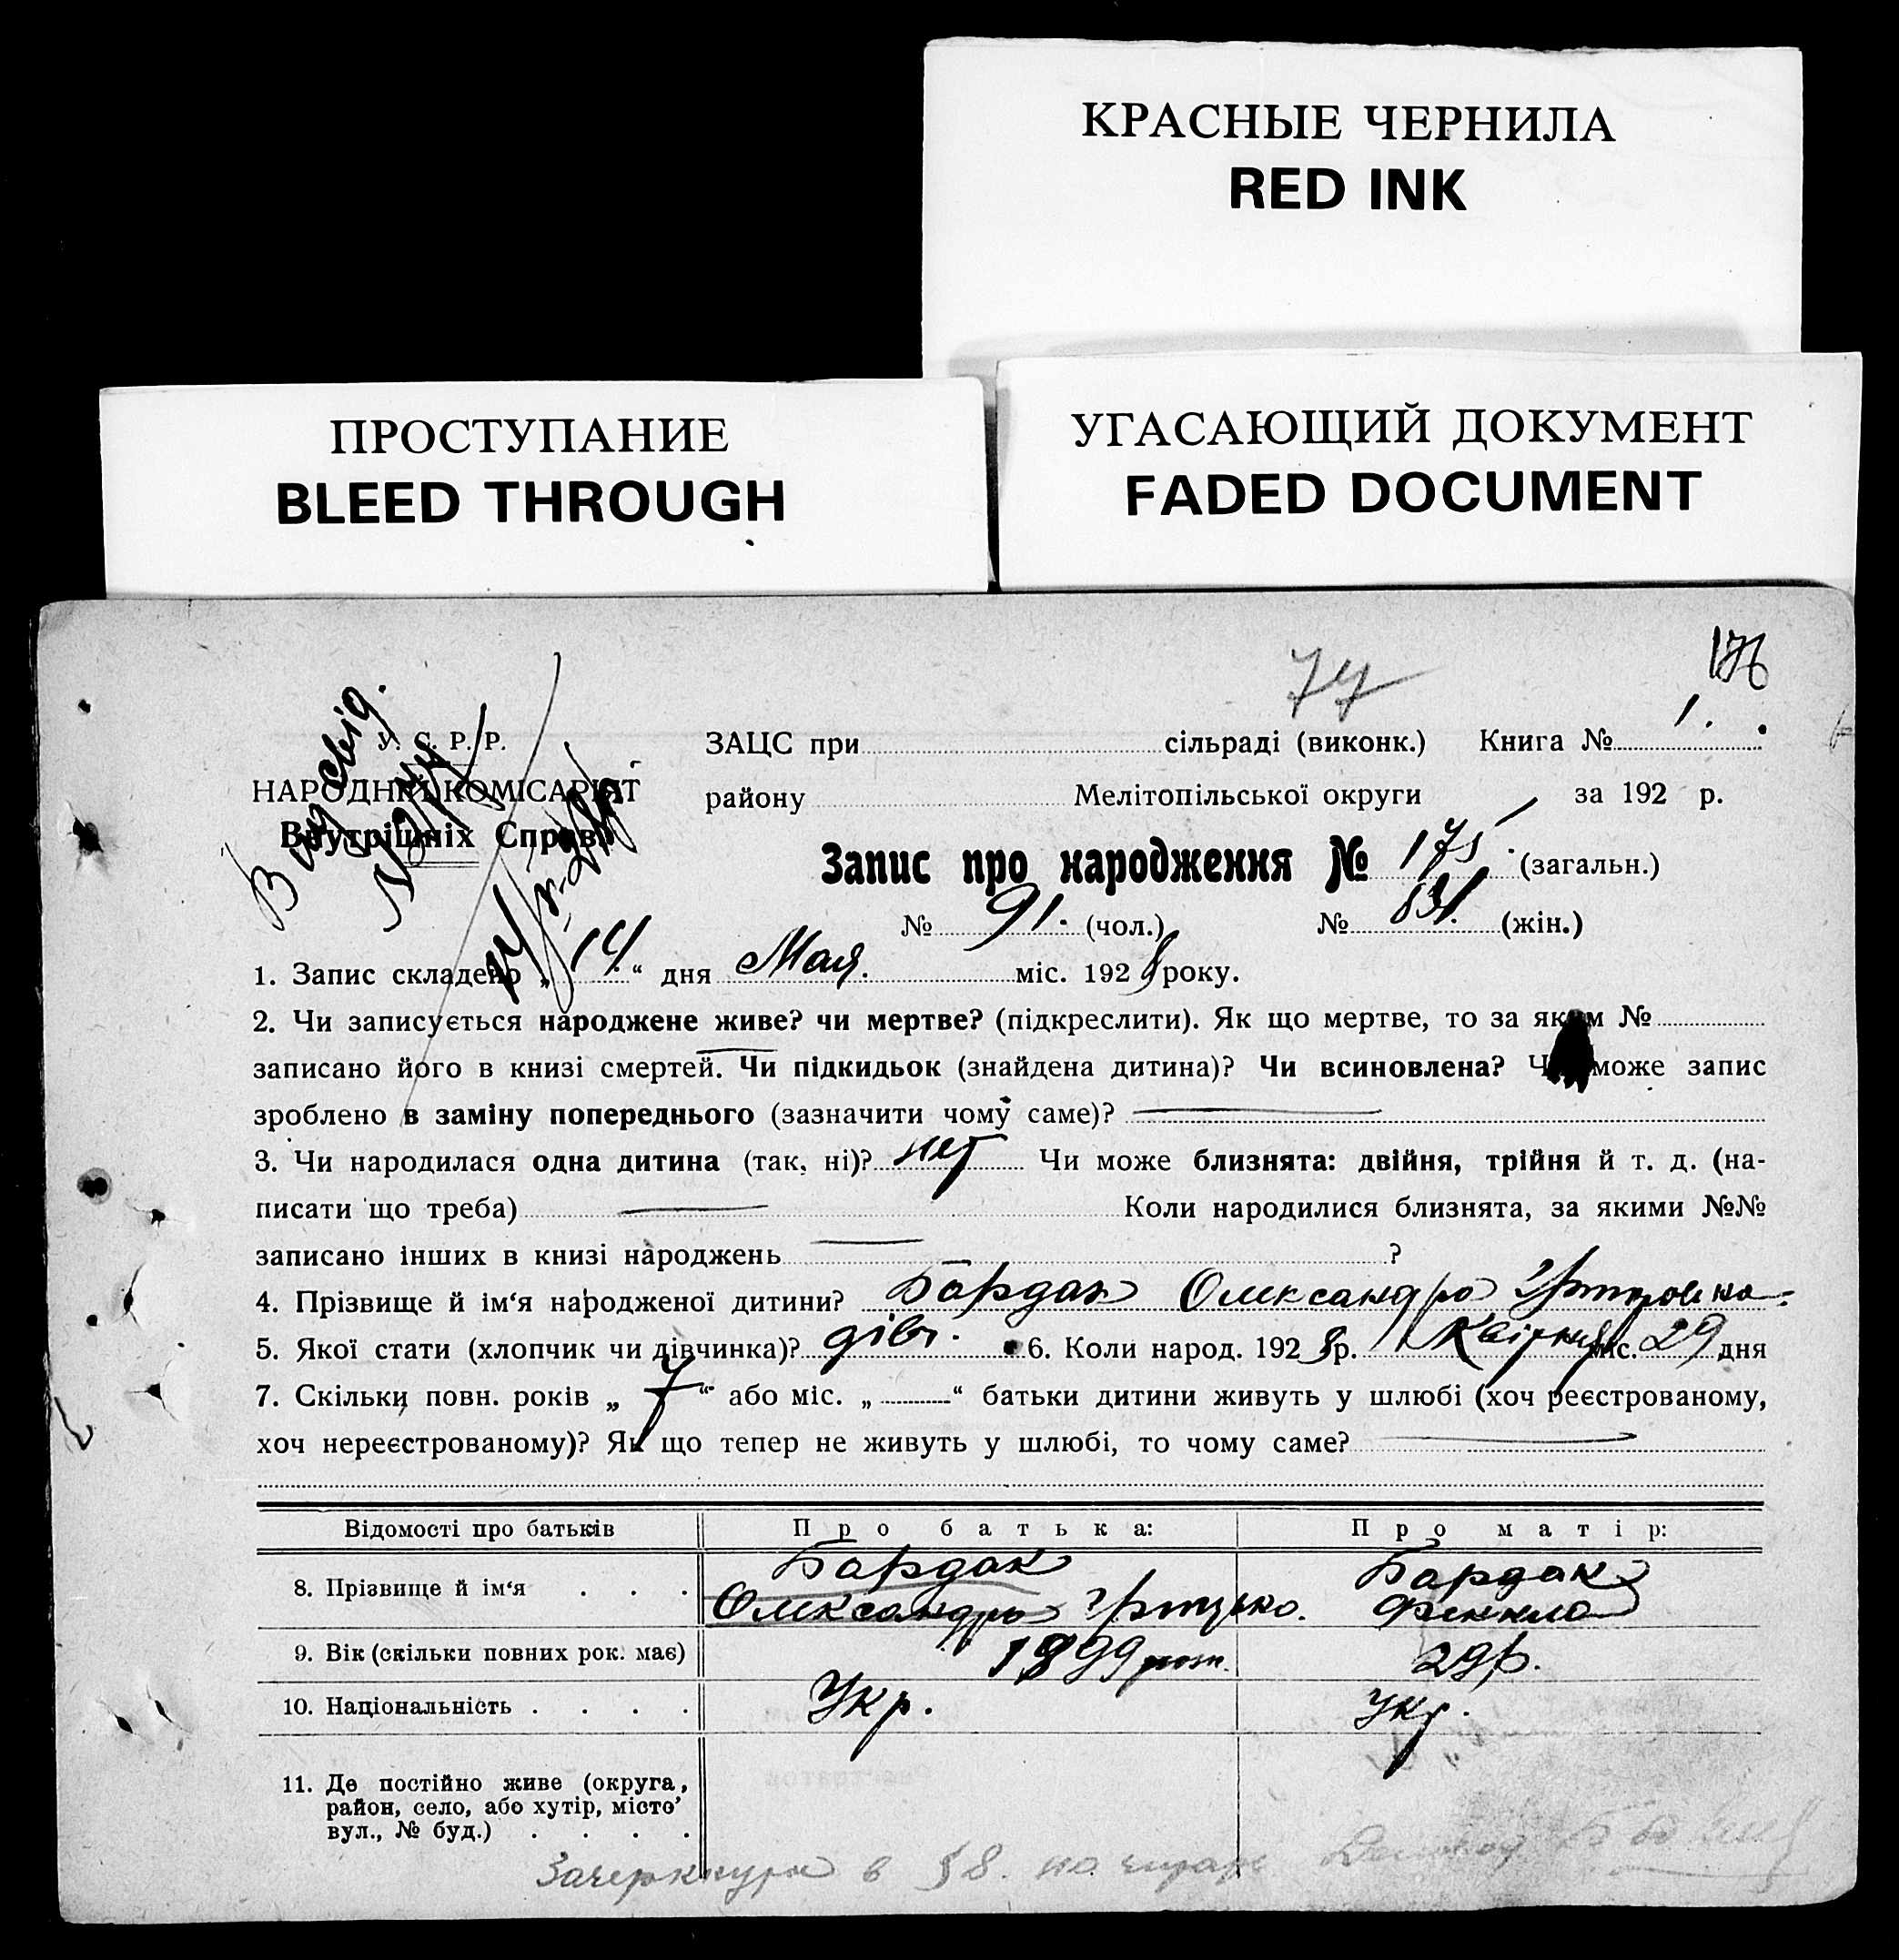 КРАСНЫЕ ЧЕРНИЛА
RED INK
ПРОСТУПАНИЕ
BLEED THROUGH
УГАСАЮЩИЙ ДОКУМЕНТ
FADED DOCUMENT
176
77
У. С. Р. Р.
НАРОДНІЙ КОМІСАРІЯТ
Внутрішніх Справ
ЗАЦС при сільраді (виконк.) Книга № 1.
району Мелітопільської округи за 192 р.
Запис про народження № 175 (загальн.)
№ 91. (чол.) № (жін.)
1. Запис складено „ 14 “ дня Мая. міс. 1928 року.
2. Чи записується народжене живе? чи мертве? (підкреслити). Як що мертве, то за яким №
записано його в книзі смертей. Чи підкидьок (знайдена дитина)? Чи всиновлена? Чи може запис
зроблено в заміну попереднього (зазначити чому саме)?
3. Чи народилася одна дитина (так, ні)? нет Чи може близнята: двійня, трійня й т. д. (на-
писати що треба) Коли народилися близнята, за якими №№
записано інших в книзі народжень ?
4. Прізвище й ім‘я народженої дитини? Бардак Олександра
5. Якої стати (хлопчик чи дівчинка)? дівч. 6. Коли народ. 1928 р. Квітня міс. 29 дня
7. Скільки повн. років „ 7 “ або міс. „ “ батьки дитини живуть у шлюбі (хоч реєстрованому,
хоч нереєстрованому)? Як що тепер не живуть у шлюбі, то чому саме?
Відомості про батьків Про батька: Про матір:
8. Прізвище й ім‘я . . . Бардак Бардак
Олександра Грицько. Феккла
9. Вік (скільки повних рок. має) 1899 29 р.
10. Національність . . . . Укр. Укр.
11. Де постійно живе (округа,
район, село, або хутір, місто
вул., № буд.) . . . .
в §8.